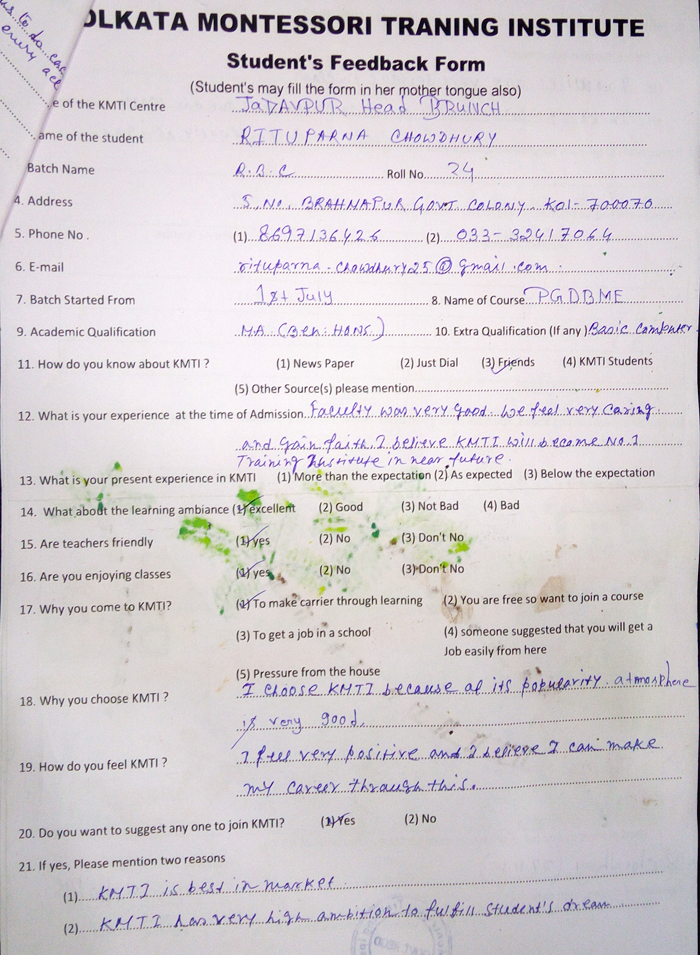 OLKATA MONTESSORI TRANING INSTITUTE
Student's Feedback Form
(Student's may fill the form in her mother tongue also)
e of the KMTI Centre JADAVPUR Head BRUNCH
ame of the student RITUPARNA CHOWDHURY
Batch Name R.B.C Roll No 24
4. Address 5. No. BRAHNAPUR GOVT COLONY KOL- 700070
5. Phone No. (1) 8697136426 (2) 033-32417064
6. E-mail rituparna.chowdhury25@gmail.com
7. Batch Started From 1st July 8. Name of Course PGDBME
9. Academic Qualification MA (Ben: HONS.) 10. Extra Qualification (If any) Basic Computer
11. How do you know about KMTI ? (1) News Paper (2) Just Dial (3) Friends (4) KMTI Students
(5) Other Source(s) please mention
12. What is your experience at the time of Admission Faculty was very good. We feel very caring
and gain faith. I believe KMTI will become No.1
Training Institute in near future.
13. What is your present experience in KMTI (1) More than the expectation (2) As expected (3) Below the expectation
14. What about the learning ambiance (1) excellent (2) Good (3) Not Bad (4) Bad
15. Are teachers friendly (1) yes (2) No (3) Don't No
16. Are you enjoying classes (1) yes (2) No (3) Don't No
17. Why you come to KMTI? (1) To make carrier through learning (2) You are free so want to join a course
(3) To get a job in a school (4) someone suggested that you will get a
Job easily from here
(5) Pressure from the house
18. Why you choose KMTI ? I choose KMTI because of its popularity. atmosphere
is very good.
19. How do you feel KMTI ? I feel very positive and I believe I can make
my career through this.
20. Do you want to suggest any one to join KMTI? (1) Yes (2) No
21. If yes, Please mention two reasons
(1) KMTI is best in market
(2) KMTI has very high ambition to fulfill student's dream